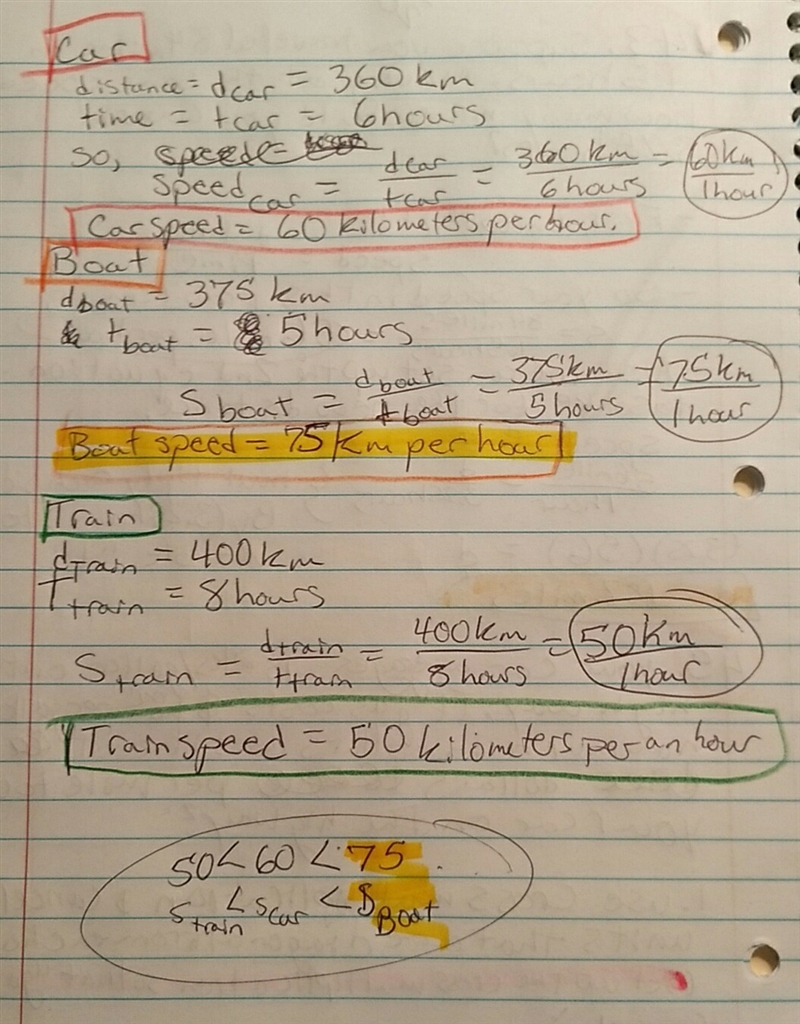 Car
distance = dcar = 360 km
time = tcar = 6 hours
so, speed =
speedcar = dcar/tcar = 360 km/6 hours = 60 km/1 hour
Car speed = 60 kilometers per hour.
Boat
dboat = 375 km
tboat = 5 hours
Sboat = dboat/tboat = 375 km/5 hours = 75 km/1 hour
Boat speed = 75 km per hour
Train
dTrain = 400 km
Ttrain = 8 hours
Strain = dtrain/ttrain = 400 km/8 hours = 50 Km/1 hour
Train speed = 50 kilometers per an hour
50 < 60 < 75.
Strain < Scar < SBoat